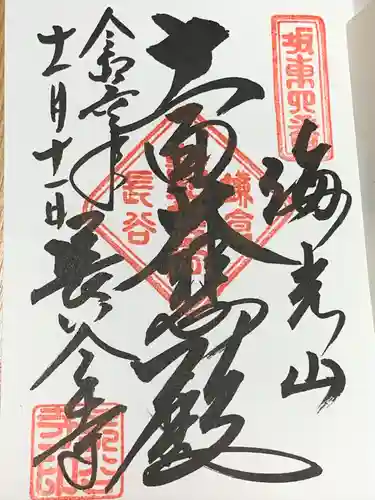 坂東四番
海光山
十一面大悲殿
鎌倉
長谷
令和二年
十二月十一日
長谷寺